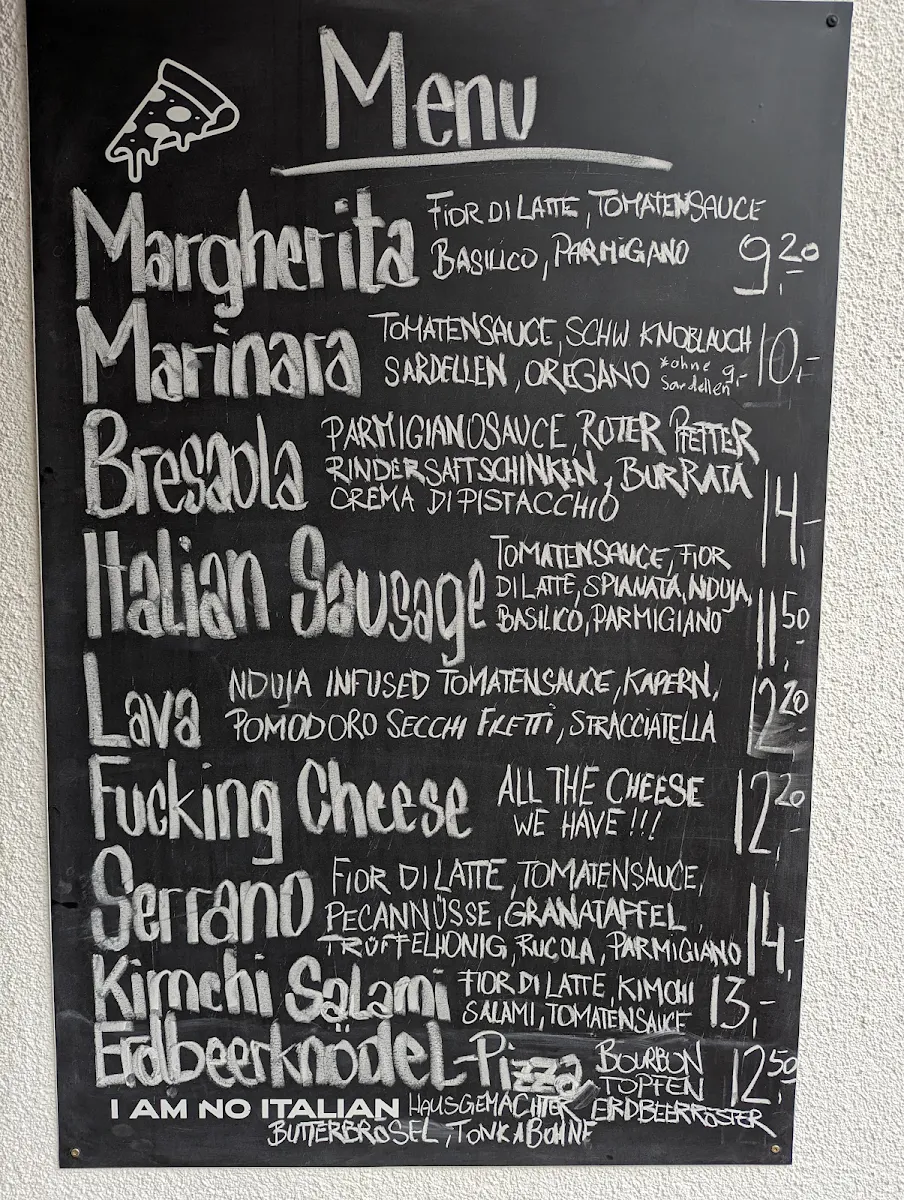 Menu
Margherita FIOR DI LATTE, TOMATENSAUCE
BASILICO, PARMIGANO 9,20
Marinara TOMATENSAUCE, SCHW KNOBLAUCH
SARDELLEN, OREGANO *ohne Sardellen 9,- 10,-
Bresaola PARMIGIANOSAUCE, ROTER PFEFFER
RINDERSAFTSCHINKEN, BURRATA
CREMA DI PISTACCHIO 14,-
Italian Sausage TOMATENSAUCE, FIOR
DI LATTE, SPIANATA, NDUJA,
BASILICO, PARMIGIANO 11,50
Lava NDUJA INFUSED TOMATENSAUCE, KAPERN,
POMODORO SECCHI FILETTI, STRACCIATELLA 12,20
Fucking Cheese ALL THE CHEESE
WE HAVE!!! 12,20
Serrano FIOR DI LATTE, TOMATENSAUCE,
PECANNÜSSE, GRANATAPFEL,
TRÜFFELHONIG, RUCOLA, PARMIGIANO 14,-
Kimchi Salami FIOR DI LATTE, KIMCHI
SALAMI, TOMATENSAUCE 13,-
Erdbeerknödel-Pizza BOURBON
TOPFEN 12,50
I AM NO ITALIAN HAUSGEMACHTER ERDBEERRÖSTER
BUTTERBRÖSEL, TONKABOHNE